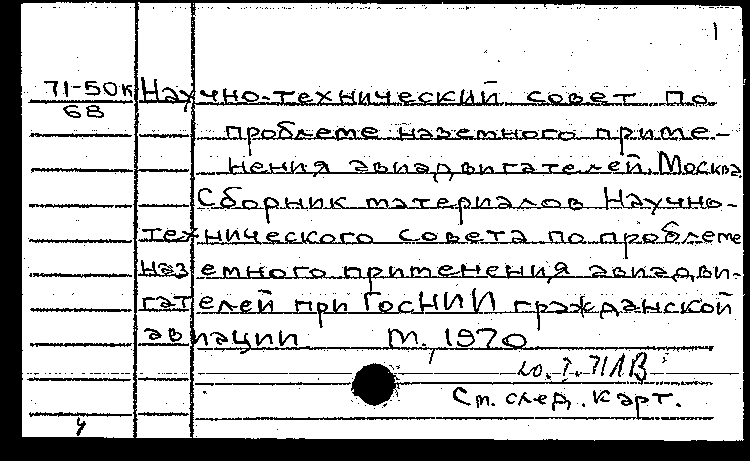 1
71-50к Научно-технический совет по
68
проблеме наземного приме-
нения авиадвигателей. Москва
Сборник материалов Научно-
технического совета по проблеме
наземного применения авиадви-
гателей при ГосНИИ гражданской
авиации м. 1970
См. след. карт.